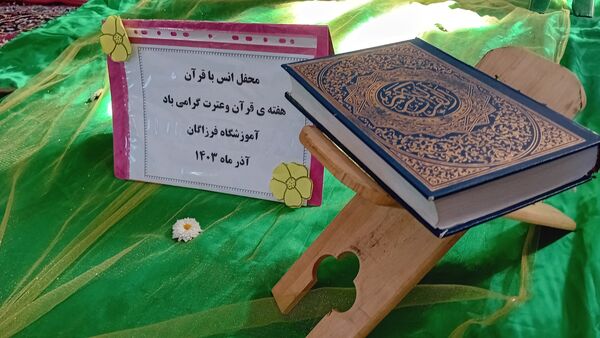 محفل انس با قرآن
هفته ی قرآن وعترت گرامی باد
آموزشگاه فرزاگان
آذر ماه ۱۴۰۳